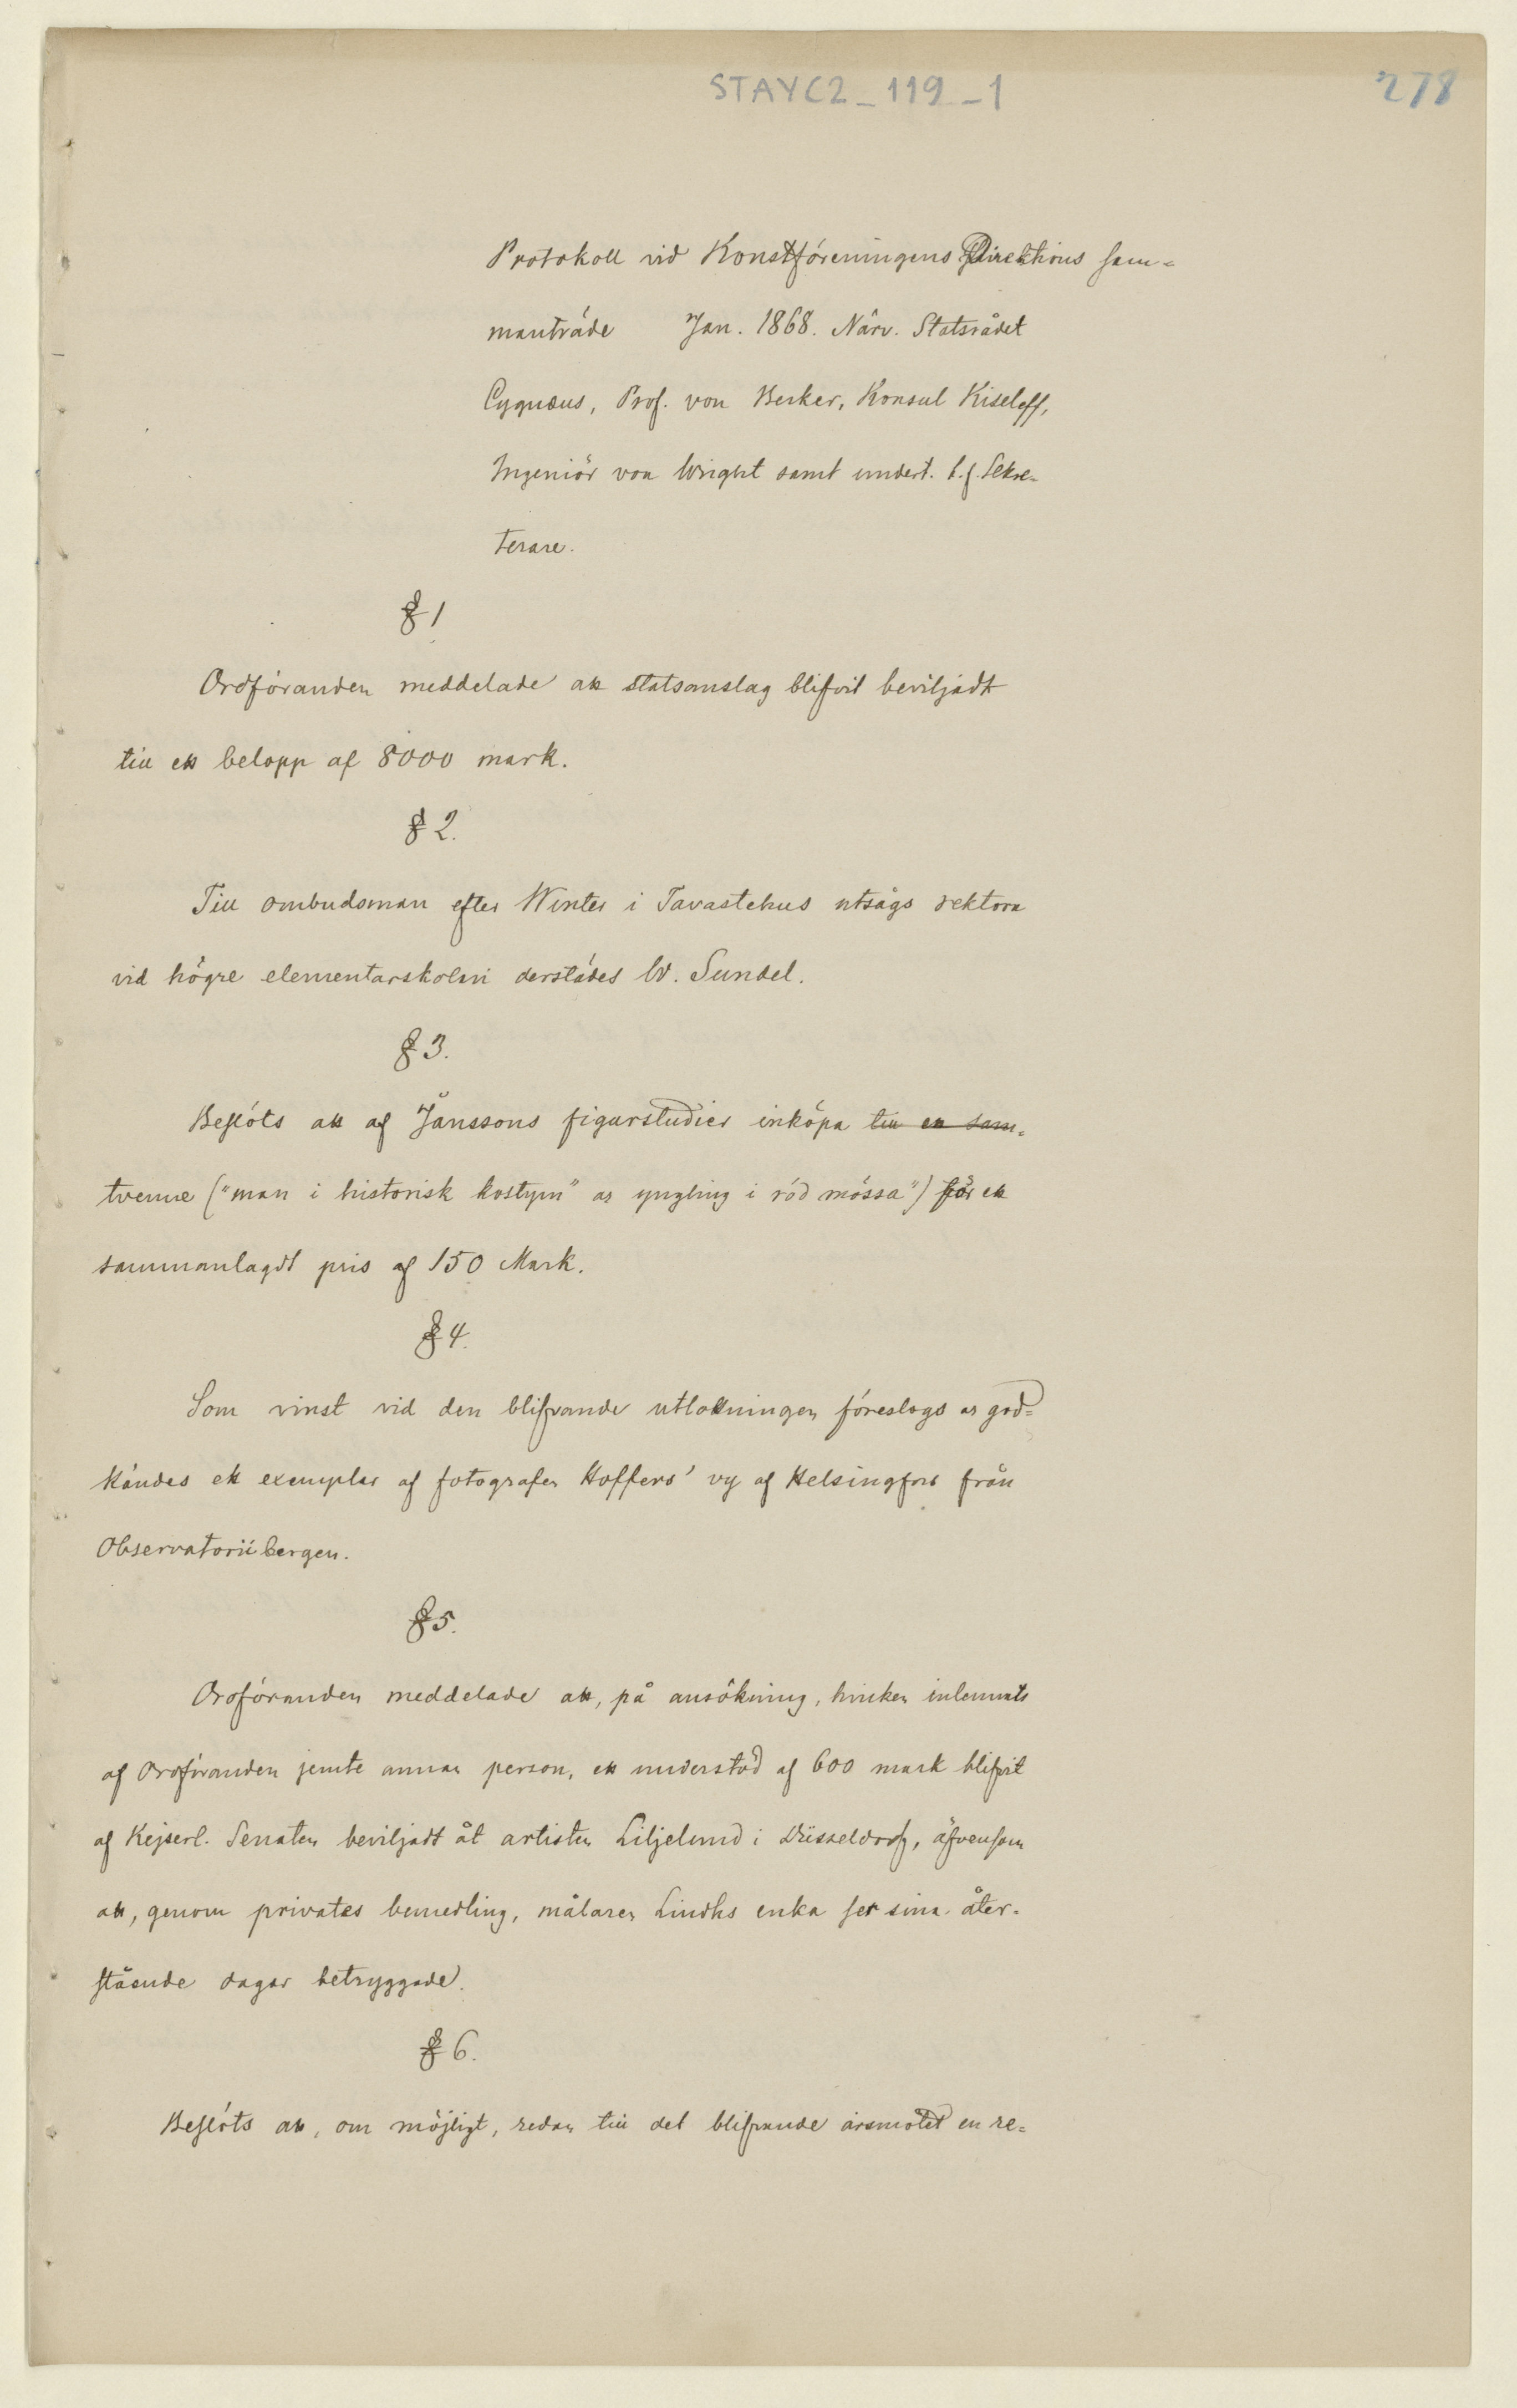 STAYC2_119_1
278
Protokoll vid Konstföreningens Direktions sam-
manträde Jan. 1868. Närv. Statsrådet
Cygnæus, Prof. von Becker, Konsul Kiseleff,
Ingeniör von Wright samt undert. t.f. Sekre-
terare.
§ 1
Ordföranden meddelade att statsanslag blifvit beviljadt
till ett belopp af 8000 mark.
§ 2.
Till ombudsman efter Winter i Tavastehus utsågs rektorn
vid högre elementarskolan derstädes W. Sundel.
§ 3.
Beslöts att af Janssons figurstudier inköpa till en sam-
tvenne ("man i historisk kostym" os yngling i röd mössa") för ett
sammanlagdt pris af 150 Mark.
§ 4.
Som vinst vid den blifvande utlottningen föreslogs os god-
kändes ett exemplar af fotografen Hoffers' vy af Helsingfors från
Observatoriibergen.
§ 5.
Ordföranden meddelade att, på ansökning, hvilken inlemnats
af Ordföranden jemte annan person, ett understöd af 600 mark blifvit
af Kejserl. Senaten beviljadt åt artisten Liljelund i Düsseldorf, äfvensom
att, genom privates bemedling, målaren Lindhs enka ser sina åter-
stående dagar betryggade.
§ 6.
Beslöts att, om möjligt, redan till det blifvande årsmötet en re-